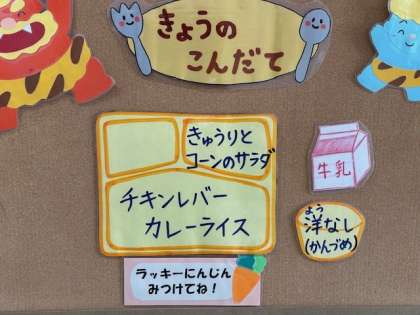 きょうの
こんだて
きゅうりと
コーンのサラダ
チキンレバー
カレーライス
牛乳
よう
洋なし
(かんづめ)
ラッキーにんじん
みつけてね!